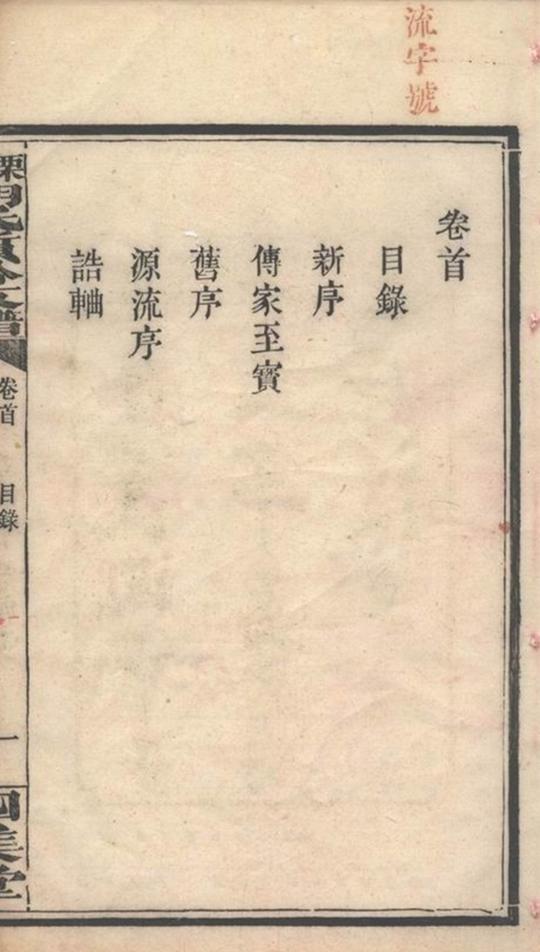 流字號
卷首
目錄
新序
傳家至寶
舊序
源流序
誥軸
卷首
目錄
一